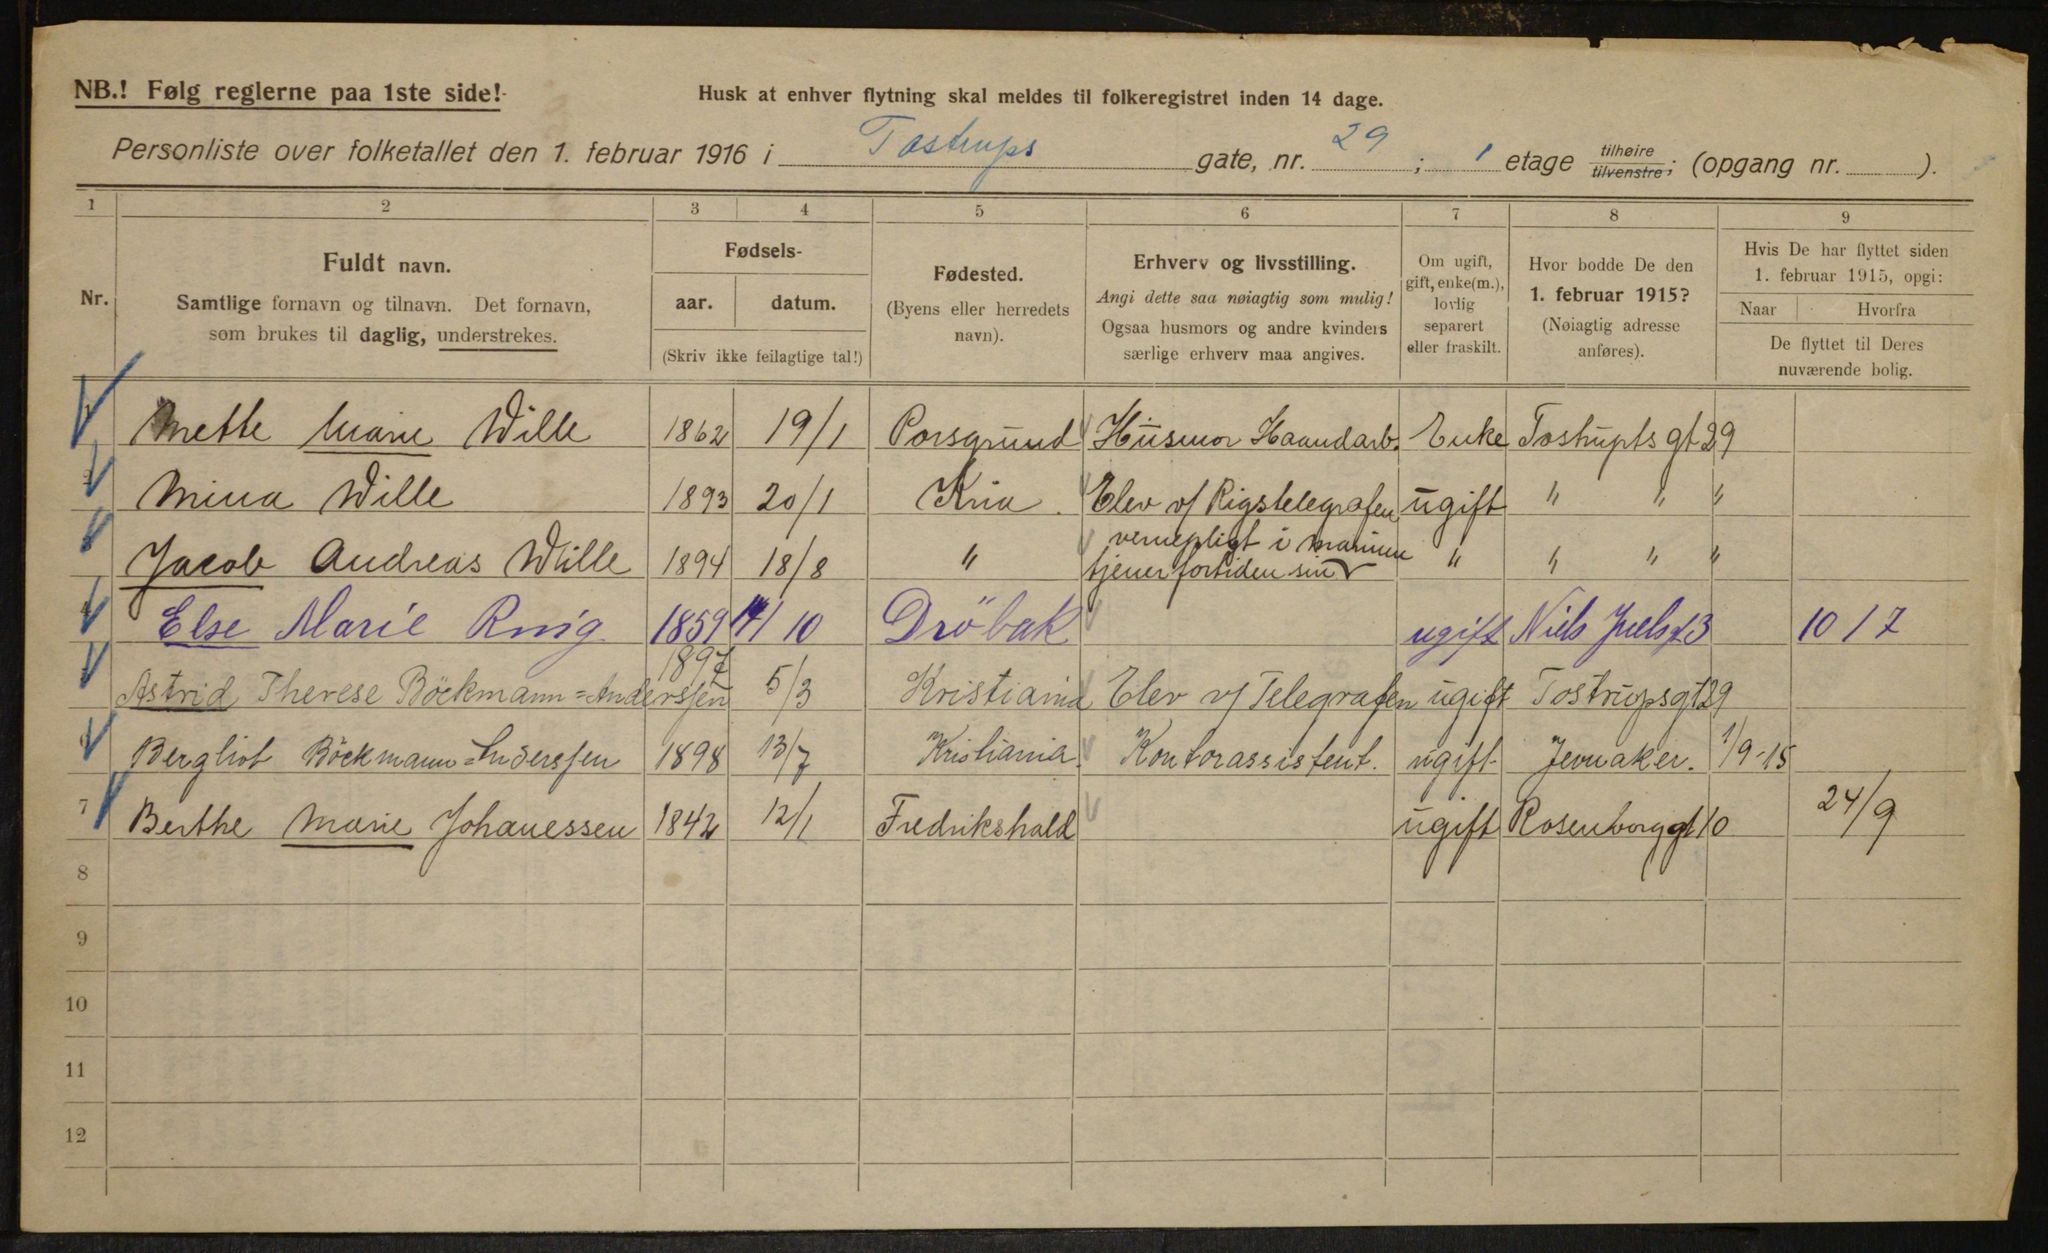 NB.! Følg reglerne paa 1ste side!
Husk at enhver flytning skal meldes til folkeregistret inden 14 dage.
Personliste over folketallet den 1. februar 1916 i Tostrups gate, nr. 29; 1 etage tilhøire tilvenstre; (opgang nr. ).
1 2 3 4 5 6 7 8 9
Nr.
Fuldt navn.
Samtlige fornavn og tilnavn. Det fornavn,
som brukes til daglig, understrekes.
Fødsels-
aar. datum.
(Skriv ikke feilagtige tal!)
Fødested.
(Byens eller herredets
navn).
Erhverv og livsstilling.
Angi dette saa nøiagtig som mulig!
Ogsaa husmors og andre kvinders
særlige erhverv maa angives.
Om ugift,
gift, enke(m.),
lovlig
separert
eller fraskilt.
Hvor bodde De den
1. februar 1915?
(Nøiagtig adresse
anføres).
Hvis De har flyttet siden
1. februar 1915, opgi:
Naar Hvorfra
De flyttet til Deres
nuværende bolig.
1 Mette Marie Wille 1862 19/1 Porsgrund Husmor Haandarb. Enke Tostrupts gt 29
2 Mina Wille 1893 20/1 Kria. Elev v/ Rigstelegrafen ugift " " "
3 Jacob Andreas Wille 1894 18/8 " vernepligt i marinen " " " "
tjener fortiden sin
4 Else Marie 1859 14/10 Dröbak ugift Niels Juelsgt 3 10/7
5 Astrid Therese Böckmann=Anderssen 1897 5/3 Kristiania Elev v/ Telegrafen ugift Tostrupsgt 29
6 Bergliot Böckmann=Anderssen 1898 13/7 Kristiania. Kontorassistent. ugift. Jevnaker. 1/9-15
7 Berthe Marie Johanessen 1842 12/1 Fredrikshald ugift Rosenborggt 10 24/9
8
9
10
11
12